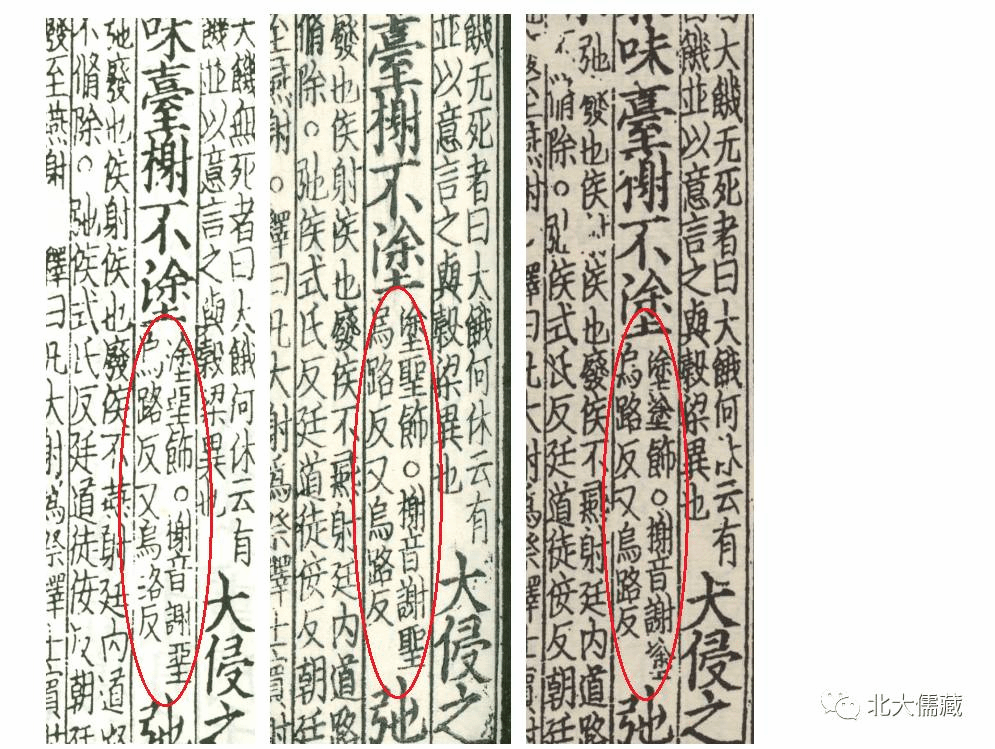 大饑無死者曰大餓何休云有
饑並以意言之與榖梁異也
大侵之
味臺榭不塗
塗堊飾。榭音謝堊
烏路反又烏洛反
弛
弛廢也侯射侯也廢侯不燕射廷内道路
不脩除。弛侯式氏反廷道徒佞反朝廷
發至燕射 釋曰凡大射爲祭擇士賓射
餓无死者曰大餓何休云有
並以意言之與榖梁異也
大侵之
臺榭不塗
塗聖飾。榭音謝聖
烏路反又烏路反
弛
廢也侯射侯也廢侯不燕射廷内道路
脩除。弛侯式氏反廷道徒佞反朝廷
至燕射。釋曰凡大射爲祭擇士賓射
大餓无死者曰大餓何休云有
饑並以意言之與榖梁異也
大侵之
味臺榭不塗
塗塗飾。榭音謝塗
烏路反又烏路反
弛
弛廢也侯射侯也廢侯不燕射廷内道路
脩除。弛侯式氏反廷道徒佞反朝廷
至燕射 釋曰凡大射爲祭擇士
北大儒藏